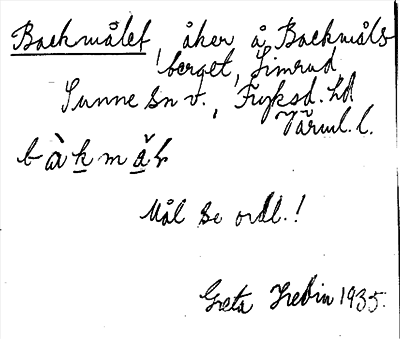 Backmålet, åker å Backmåls
berget, Simrud
Sunne sn v., Fryksd. hd
Värml. l.
b à k m å̆ l
Mål se ordl.!
Greta Hedin 1935.